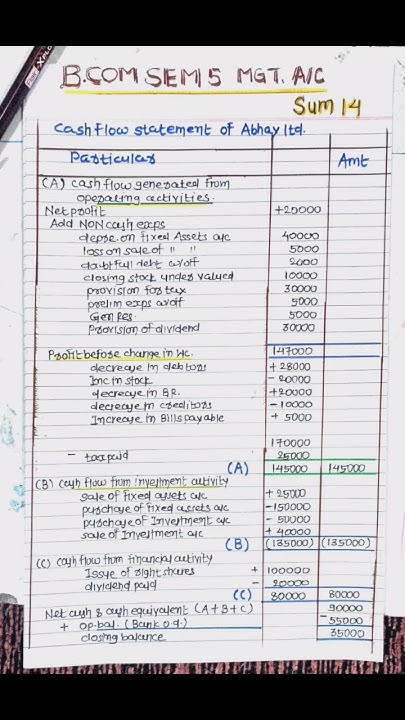 B.COM SEM 5 MGT. A/C
Sum 14
Cash Flow Statement of Abhay ltd.
Particular Amt
(A) cash flow generated from
operating activities.
Net profit +20000
Add NON cash exps
depre. on fixed Assets a/c 40000
loss on sale of " " 5000
doubtful debt w/off 2000
closing stock under valued 10000
provision for tax 30000
prelim exps w/off 5000
Gen Res. 5000
Provision of dividend 30000
Profit before change in WC. 147000
decrease in debtors + 28000
Inc in stock - 20000
decrease in B.R. +20000
decrease in creditors - 10000
Increase in Bills payable + 5000
170000
- tax paid 25000
(A) 145000 145000
(B) cash flow from investment activity
sale of fixed assets a/c + 25000
purchase of fixed assets a/c -150000
purchase of Investment a/c - 50000
sale of Investment a/c + 40000
(B) (135000) (135000)
(C) cash flow from financial activity
Issue of right shares + 100000
dividend paid - 20000
(C) 80000 80000
Net cash & cash equivalent (A+B+C) 90000
+ op. bal. (Bank o.d.) -55000
closing balance 35000